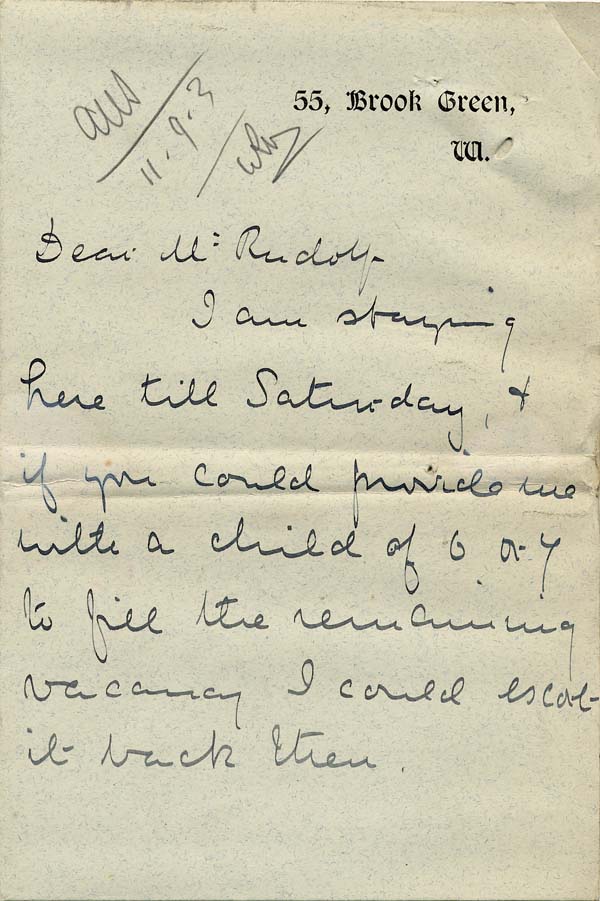 55, Brook Green,
W.
ans
11.9.3
Dear Mr. Rudolf
I am staying
here till Saturday, &
if you could provide me
with a child of 6 or 7
to fill the remaining
vacancy I could escort
it back then.